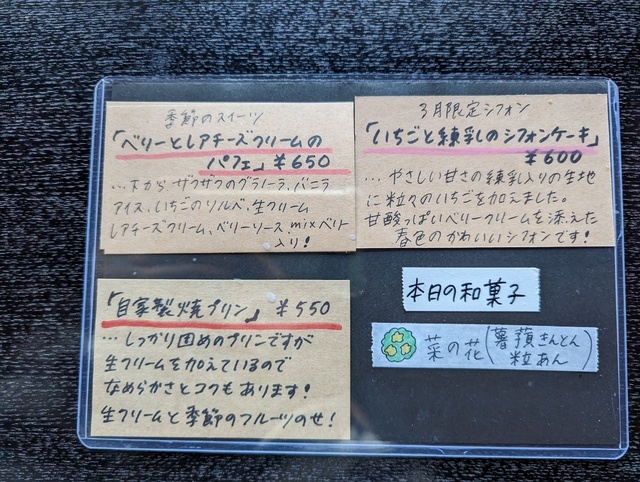 季節のスイーツ
「ベリーとレアチーズクリームの
パフェ」￥650
…下から ザクザクのグラノーラ、バニラ
アイス、いちごのソルベ、生クリーム
レアチーズクリーム、ベリーソース、mixベリー
入り！
3月限定シフォン
「いちごと練乳のシフォンケーキ」
￥600
…やさしい甘さの練乳入りの生地
に粒々のいちごを加えました。
甘酸っぱいベリークリームを添えた
春色のかわいいシフォンです！
「自家製焼プリン」￥550
…しっかり固めのプリンですが
生クリームを加えているので
なめらかさとコクもあります！
生クリームと季節のフルーツのせ！
本日の和菓子
菜の花（薯蕷きんとん
粒あん）